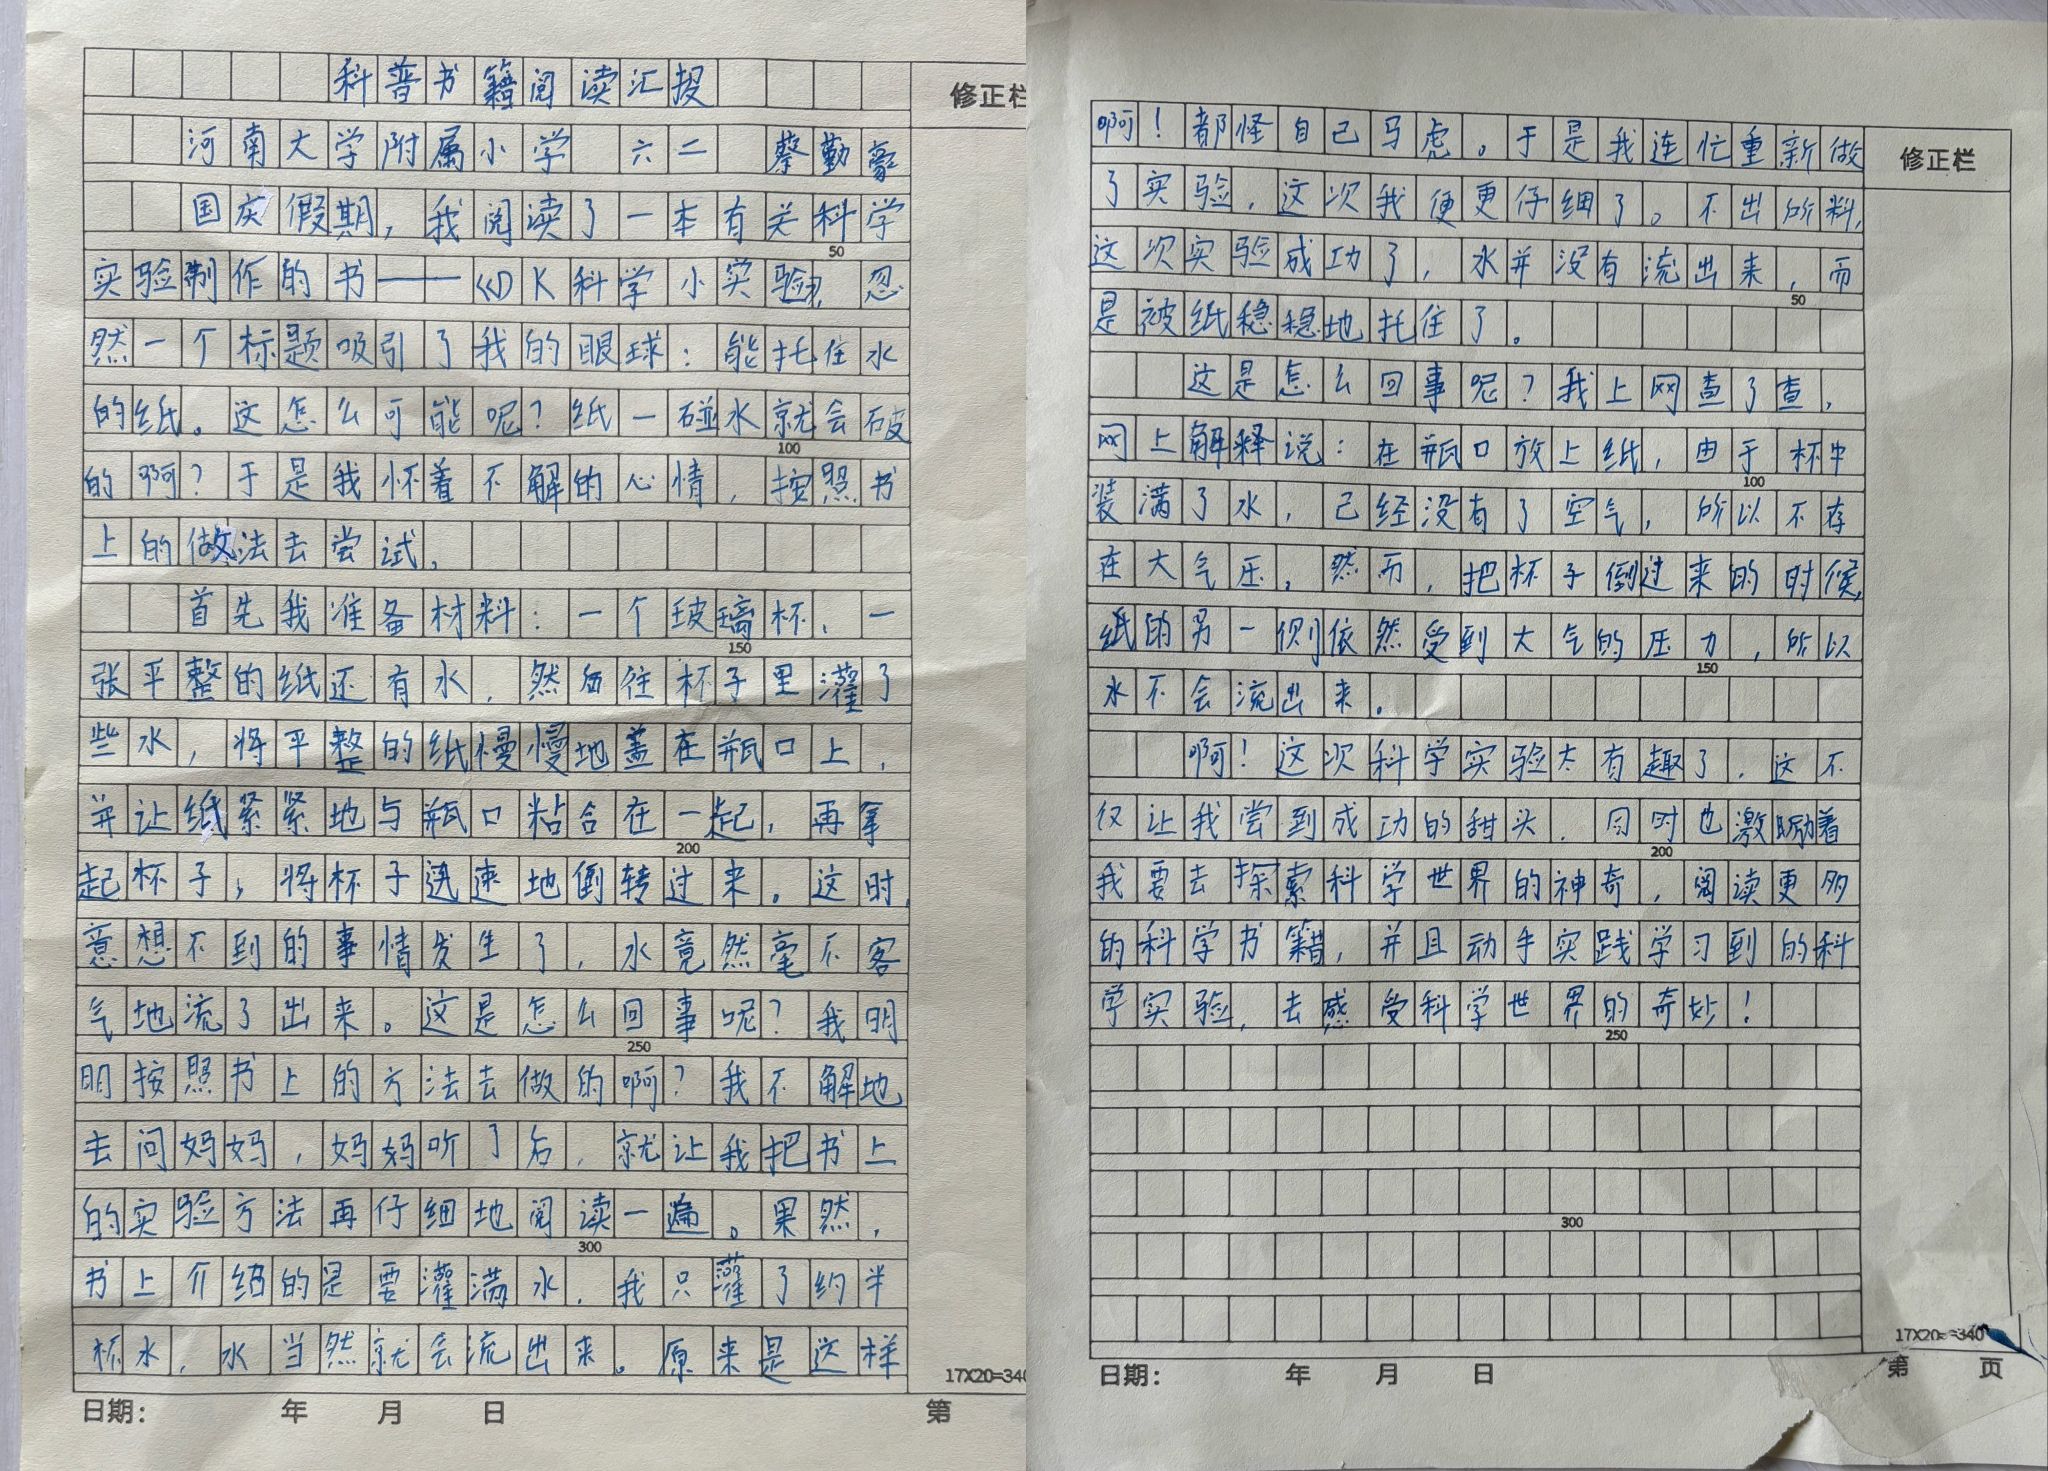 科普书籍阅读汇报
修正栏
河南大学附属小学 六二 蔡勤豪
国庆假期，我阅读了一本有关科学
50
实验制作的书——《DK科学小实验》，忽
然一个标题吸引了我的眼球：能托住水
的纸。这怎么可能呢？纸一碰水就会破
100
的啊？于是我怀着不解的心情，按照书
上的做法去尝试。
首先我准备材料：一个玻璃杯、一
150
张平整的纸还有水，然后往杯子里灌了
些水，将平整的纸慢慢地盖在瓶口上，
并让纸紧紧地与瓶口粘合在一起，再拿
200
起杯子，将杯子迅速地倒转过来。这时，
意想不到的事情发生了，水竟然毫不客
气地流了出来。这是怎么回事呢？我明
250
明按照书上的方法去做的啊？我不解地
去问妈妈，妈妈听了后，就让我把书上
的实验方法再仔细地阅读一遍。果然，
300
书上介绍的是要灌满水，我只灌了约半
杯水，水当然就会流出来。原来是这样
17X20=340
日期： 年 月 日 第
啊！都怪自己马虎。于是我连忙重新做
修正栏
了实验，这次我便更仔细了。不出所料，
这次实验成功了，水并没有流出来，而
50
是被纸稳稳地托住了。
这是怎么回事呢？我上网查了查，
网上解释说：在瓶口放上纸，由于杯中
100
装满了水，已经没有了空气，所以不存
在大气压。然而，把杯子倒过来的时候，
纸的另一侧依然受到大气的压力，所以
150
水不会流出来。
啊！这次科学实验太有趣了，这不
仅让我尝到成功的甜头，同时也激励着
200
我要去探索科学世界的神奇，阅读更多
的科学书籍，并且动手实践学习到的科
学实验，去感受科学世界的奇妙！
250
300
17X20=340
日期： 年 月 日 第 页